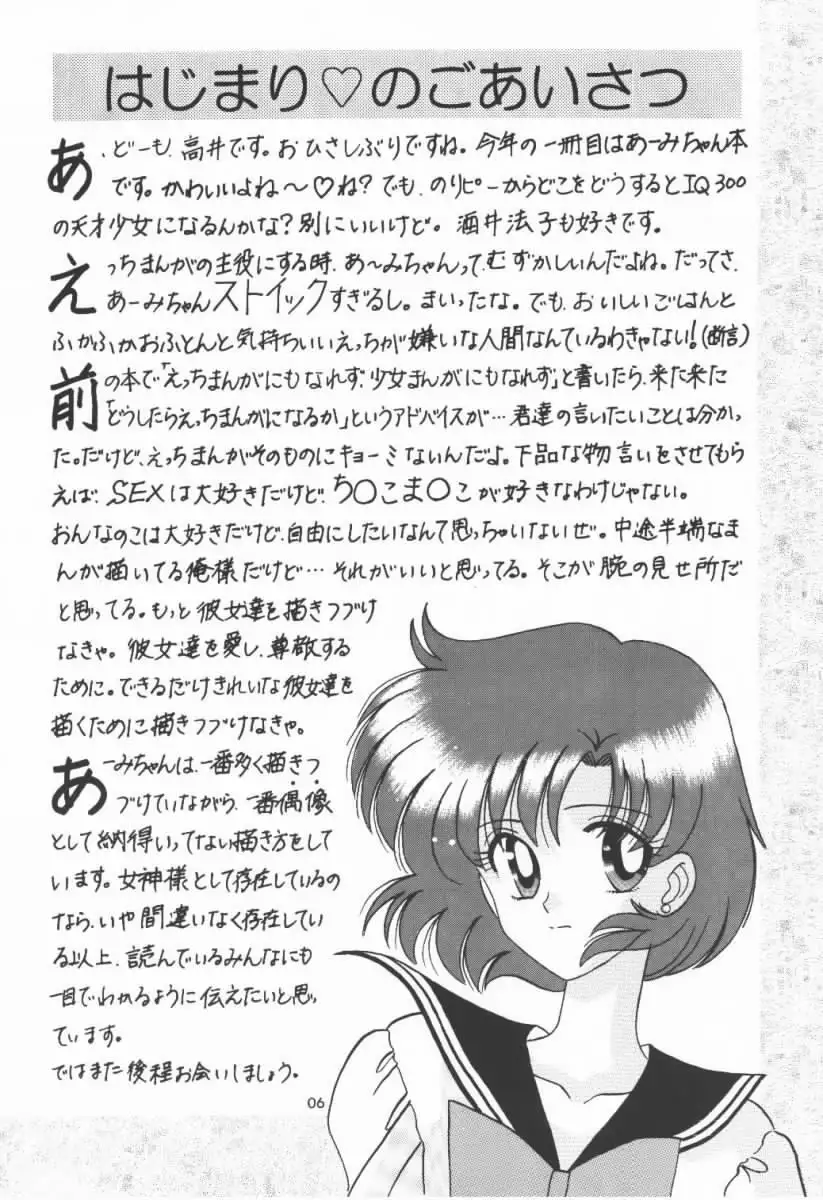 はじまり♡のごあいさつ
あ、どーも、高井です。おひさしぶりですね。今年の一冊目はあーみちゃん本
です。かわいいよね〜♡ね?でも、のりピーからどこをどうするとIQ300
の天才少女になるんかな?別にいいけど。酒井法子も好きです。
えっちまんがの主役にする時、あ〜みちゃんって、むずかしいんだよね。だってさ、
あーみちゃんストイックすぎるし。まいったな。でも、おいしいごはんと
ふかふかおふとんと気持ちいいえっちが嫌いな人間なんているわきゃない!(断言)
前の本で「えっちまんがにもなれず、少女まんがにもなれず」と書いたら、来た来た
「どうしたらえっちまんがになるか」というアドバイスが…君達の言いたいことは分かっ
た。だけど、えっちまんがそのものにキョーミないんだよ。下品な物言いをさせてもら
えば、SEXは大好きだけど、ち○こま○こが好きなわけじゃない。
おんなのこは大好きだけど、自由にしたいなんて思っちゃいないぜ。中途半端なま
んが描いてる俺様だけど…それがいいと思ってる。そこが腕の見せ所だ
と思ってる。もっと彼女達を描きつづけ
なきゃ。彼女達を愛し、尊敬する
ために。できるだけきれいな彼女達を
描くために描きつづけなきゃ。
あーみちゃんは、一番多く描きつ
づけていながら、一番偶像
として納得いってない描き方をして
います。女神様として存在しているの
なら、いや間違いなく存在してい
る以上、読んでいるみんなにも
一目でわかるように伝えたいと思っ
ています。
ではまた後程お会いしましょう。
06